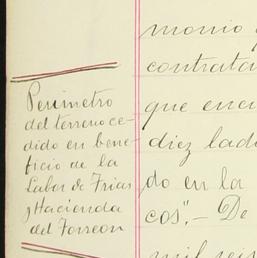 Perimetro
del terreno ce-
dido en bene-
ficio de la
Labor de Frias
y Hacienda
del Torreon
monio
contrata
que enci
diez lad
do en la
cos". - De
mil seis